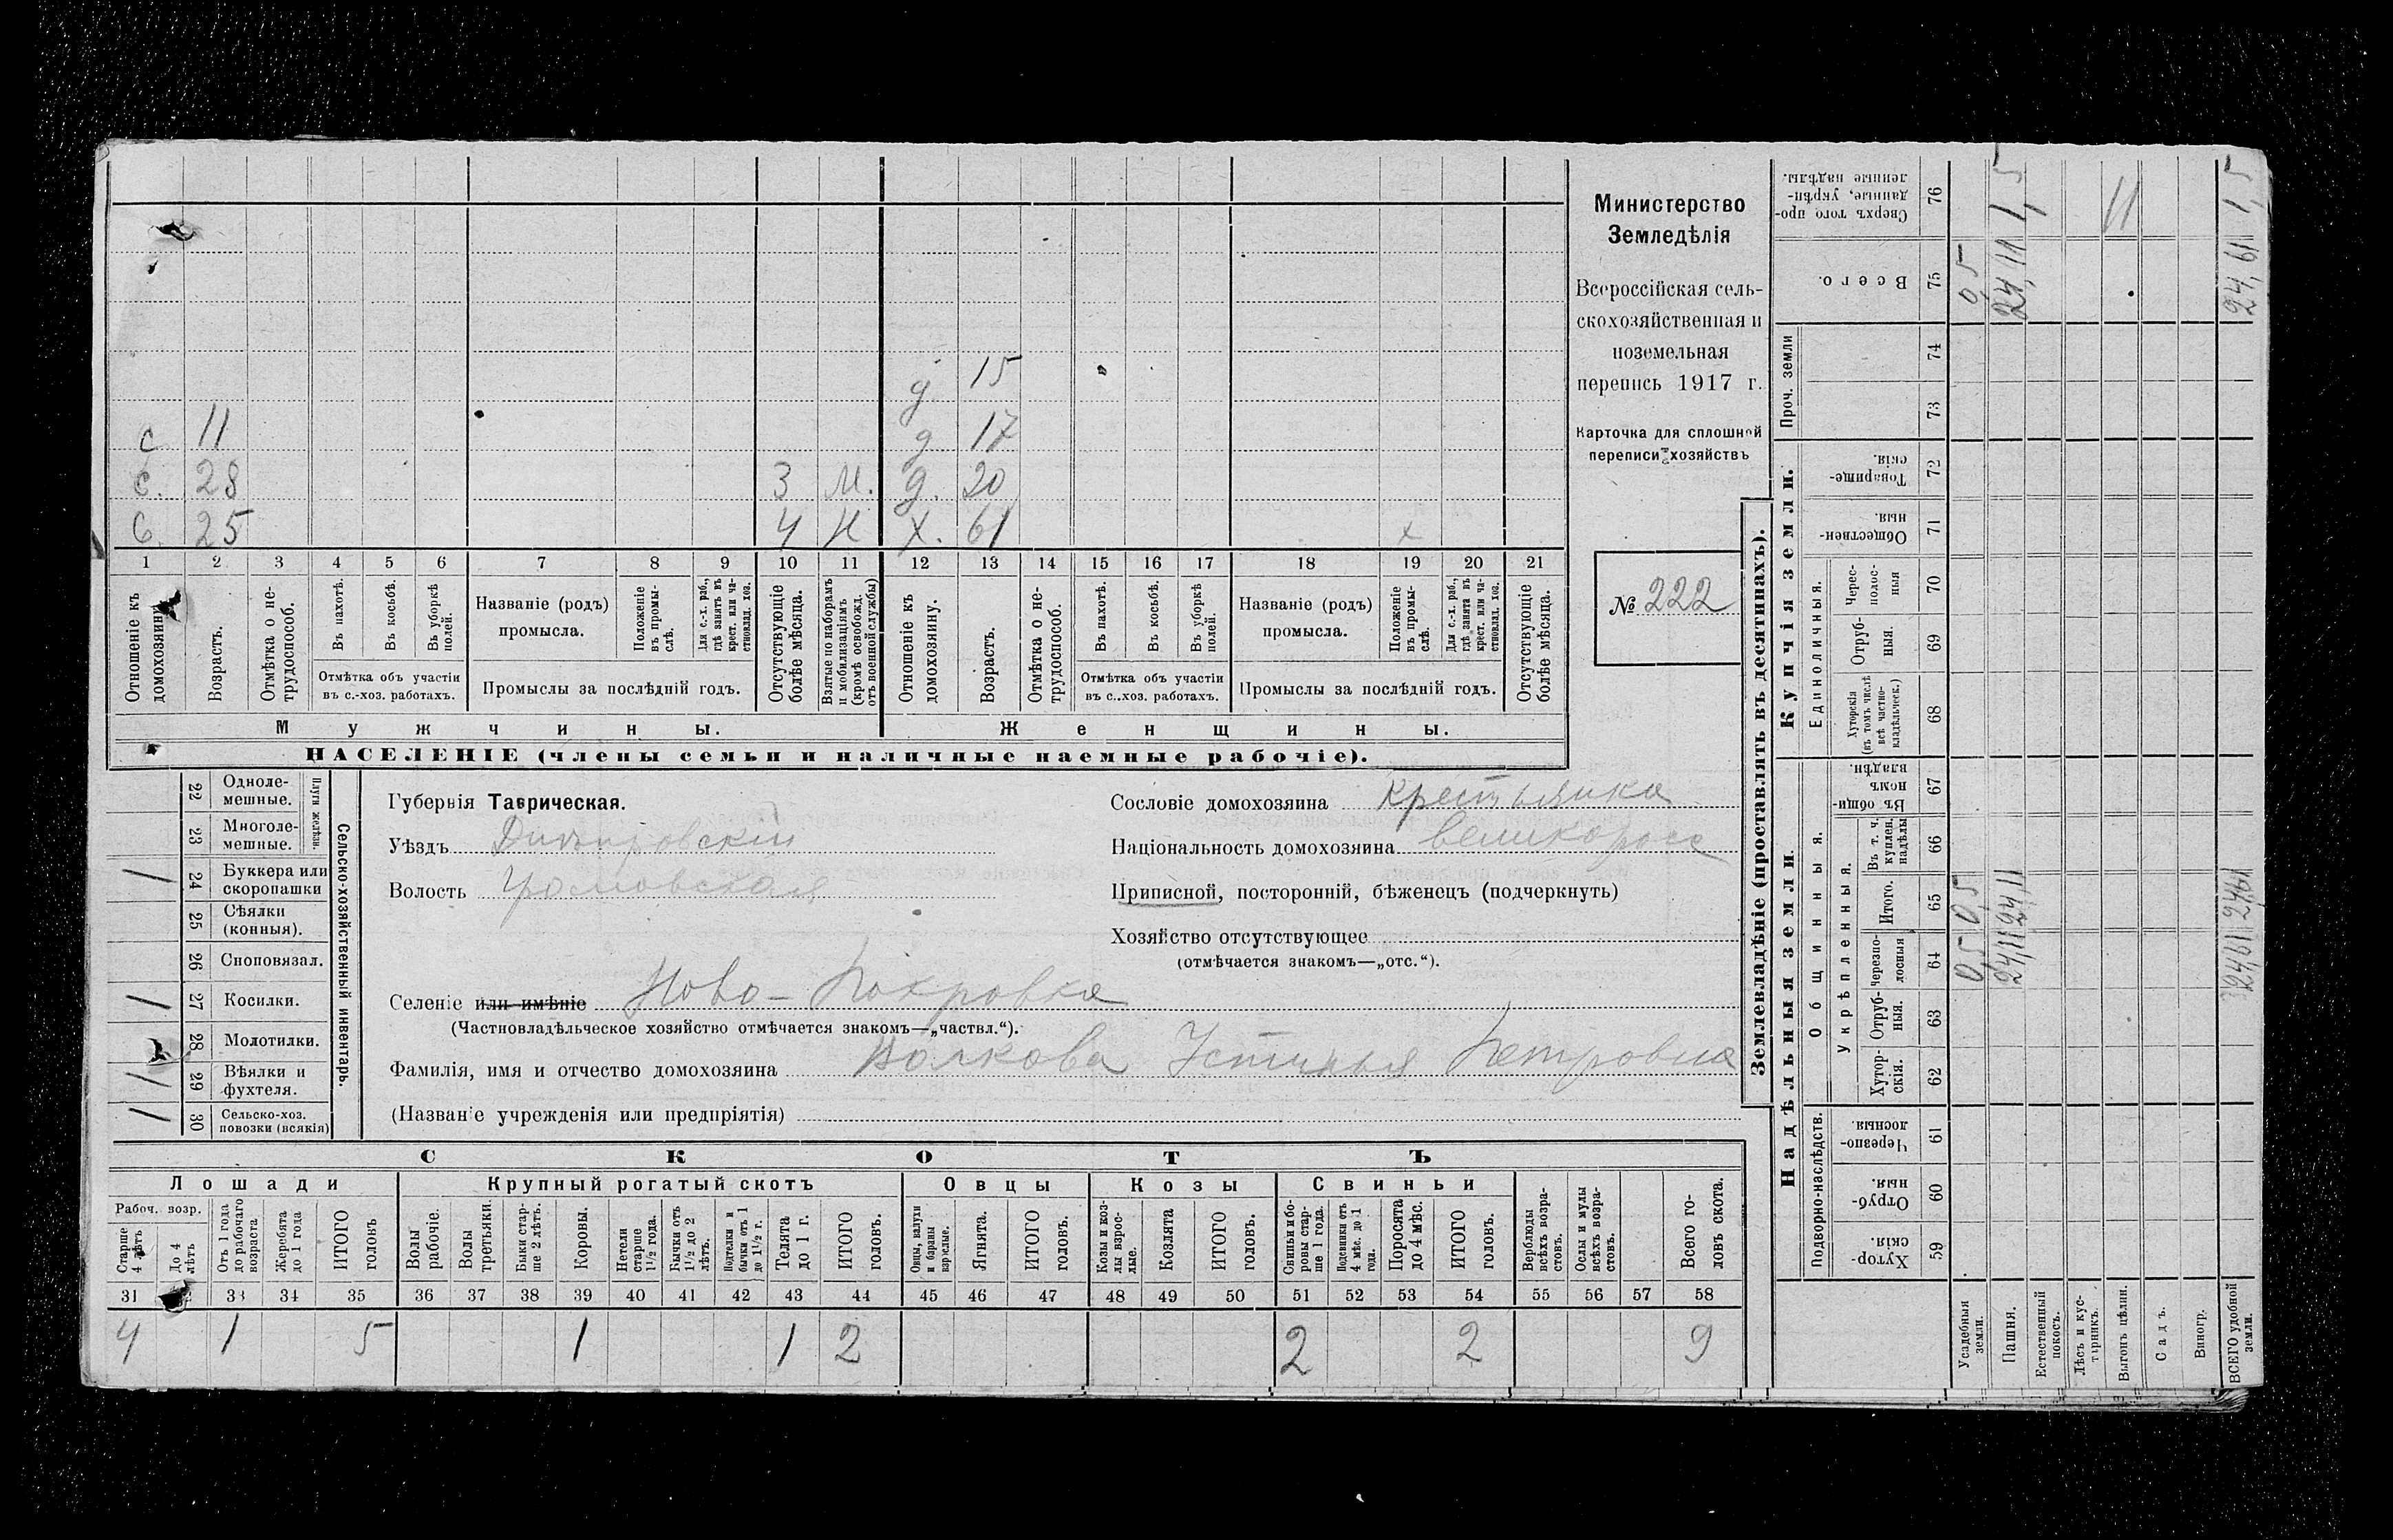 Министерство
Земледѣлія
Всероссійская сель-
скохозяйственная и
поземельная
перепись 1917 г.
Карточка для сплошной
переписи хозяйствъ
№ 222
д 15
с 11 д 17
с. 28 3 М. д. 20
с. 25 4 Н Х. 61 х
1 2 3 4 5 6 7 8 9 10 11 12 13 14 15 16 17 18 19 20 21
Отношеніе къ домохозяину.
Возрастъ.
Отмѣтка о не-трудоспособ.
Въ пахотѣ.
Въ косьбѣ.
Въ уборкѣ полей.
Отмѣтка объ участіи
въ с.-хоз. работахъ.
Названіе (родъ)
промысла.
Положеніе въ промы-слѣ.
Для с.-х. раб., гдѣ занятъ въ крест. или ча-стновлад. хоз.
Промыслы за послѣдній годъ.
Отсутствующіе болѣе мѣсяца.
Взятые по наборамъ и мобилизаціямъ (кромѣ освобожд. отъ военной службы)
Отношеніе къ домохозяину.
Возрастъ.
Отмѣтка о не-трудоспособ.
Въ пахотѣ.
Въ косьбѣ.
Въ уборкѣ полей.
Отмѣтка объ участіи
въ с..хоз. работахъ.
Названіе (родъ)
промысла.
Положеніе въ промы-слѣ.
Для с.-х. раб., гдѣ занята въ крест. или ча-стновлад. хоз.
Промыслы за послѣдній годъ.
Отсутствующіе болѣе мѣсяца.
Мужчины. Женщины.
НАСЕЛЕНІЕ (члены семьи и наличные наемные рабочіе).
Сельско-хозяйственный инвентарь.
Плуги желѣзн.
22 Одноле-мешные.
23 Многоле-мешные.
1 24 Буккера или скоропашки
25 Сѣялки (конныя).
26 Сноповязал.
1 27 Косилки.
28 Молотилки.
1 29 Вѣялки и фухтеля.
1 30 Сельско-хоз. повозки (всякія)
Губернія Таврическая.
Уѣздъ Днѣпровскій
Волость
Сословіе домохозяина крестьянка
Національность домохозяина великоросс
Приписной, посторонній, бѣженецъ (подчеркнуть)
Хозяйство отсутствующее
(отмѣчается знакомъ—„отс.“).
Селеніе или имѣніе Ново-Покровка
(Частновладѣльческое хозяйство отмѣчается знакомъ—„частвл.“).
Фамилія, имя и отчество домохозяина Волкова Устинья Петровна
(Названіе учрежденія или предпріятія)
СКОТЪ
Лошади Крупный рогатый скотъ Овцы Козы Свиньи
Рабоч. возр.
Старше 4 лѣтъ
До 4 лѣтъ
Отъ 1 года до рабочаго возраста
Жеребята до 1 года
ИТОГО головъ
Волы рабочіе.
Волы третьяки.
Быки стар-ше 2 лѣтъ.
Коровы.
Нетели старше 1½ года.
Бычки отъ 1½ до 2 лѣтъ.
Подтелки и бычки отъ 1 до 1½ г.
Телята до 1 г.
ИТОГО головъ.
Овцы, валухи и бараны взрослые.
Ягнята.
ИТОГО головъ.
Козы и коз-лы взрос-лые.
Козлята
ИТОГО головъ.
Свиньи и бо-ровы стар-ше 1 года.
Подсвинки отъ 4 мѣс. до 1 года.
Поросята до 4 мѣс.
ИТОГО головъ.
Верблюды всѣхъ возра-стовъ.
Ослы и мулы всѣхъ возра-стовъ.
Всего го-ловъ скота.
31 33 34 35 36 37 38 39 40 41 42 43 44 45 46 47 48 49 50 51 52 53 54 55 56 57 58
4 1 5 1 1 2 2 2 9
Землевладѣніе (проставлять въ десятинахъ).
Надѣльныя земли.
Купчія земли.
Подворно-наслѣдств.
Общинныя.
Укрѣпленныя.
Единоличныя.
Проч. земли
Хутор-скія. 59
Отруб-ныя. 60
Черезпо-лосныя. 61
Хутор-скія. 62
Отруб-ныя. 63
Черезпо-лосныя 64
Итого. 65
Въ т. ч. куплен. надѣлы 66
Въ общи-номъ владѣн. 67
Хуторскія (въ томъ числѣ всѣ частно-владѣльческ.) 68
Отруб-ныя. 69
Черес-полос-ныя 70
Обществен-ныя. 71
Товарище-скія. 72
73
74
Всего. 75
Сверхъ того про-данные, укрѣп-ленные надѣлы. 76
Усадебныя земли. 0,5 0,5 0,5
Пашня. 24,11 24,11 24,11 1,5
Естественный покосъ.
Лѣсъ и кус-тарникъ.
Выгонъ цѣлин. 11
Садъ.
Виногр.
ВСЕГО удобной земли. 24,61 24,61 24,61 1,5